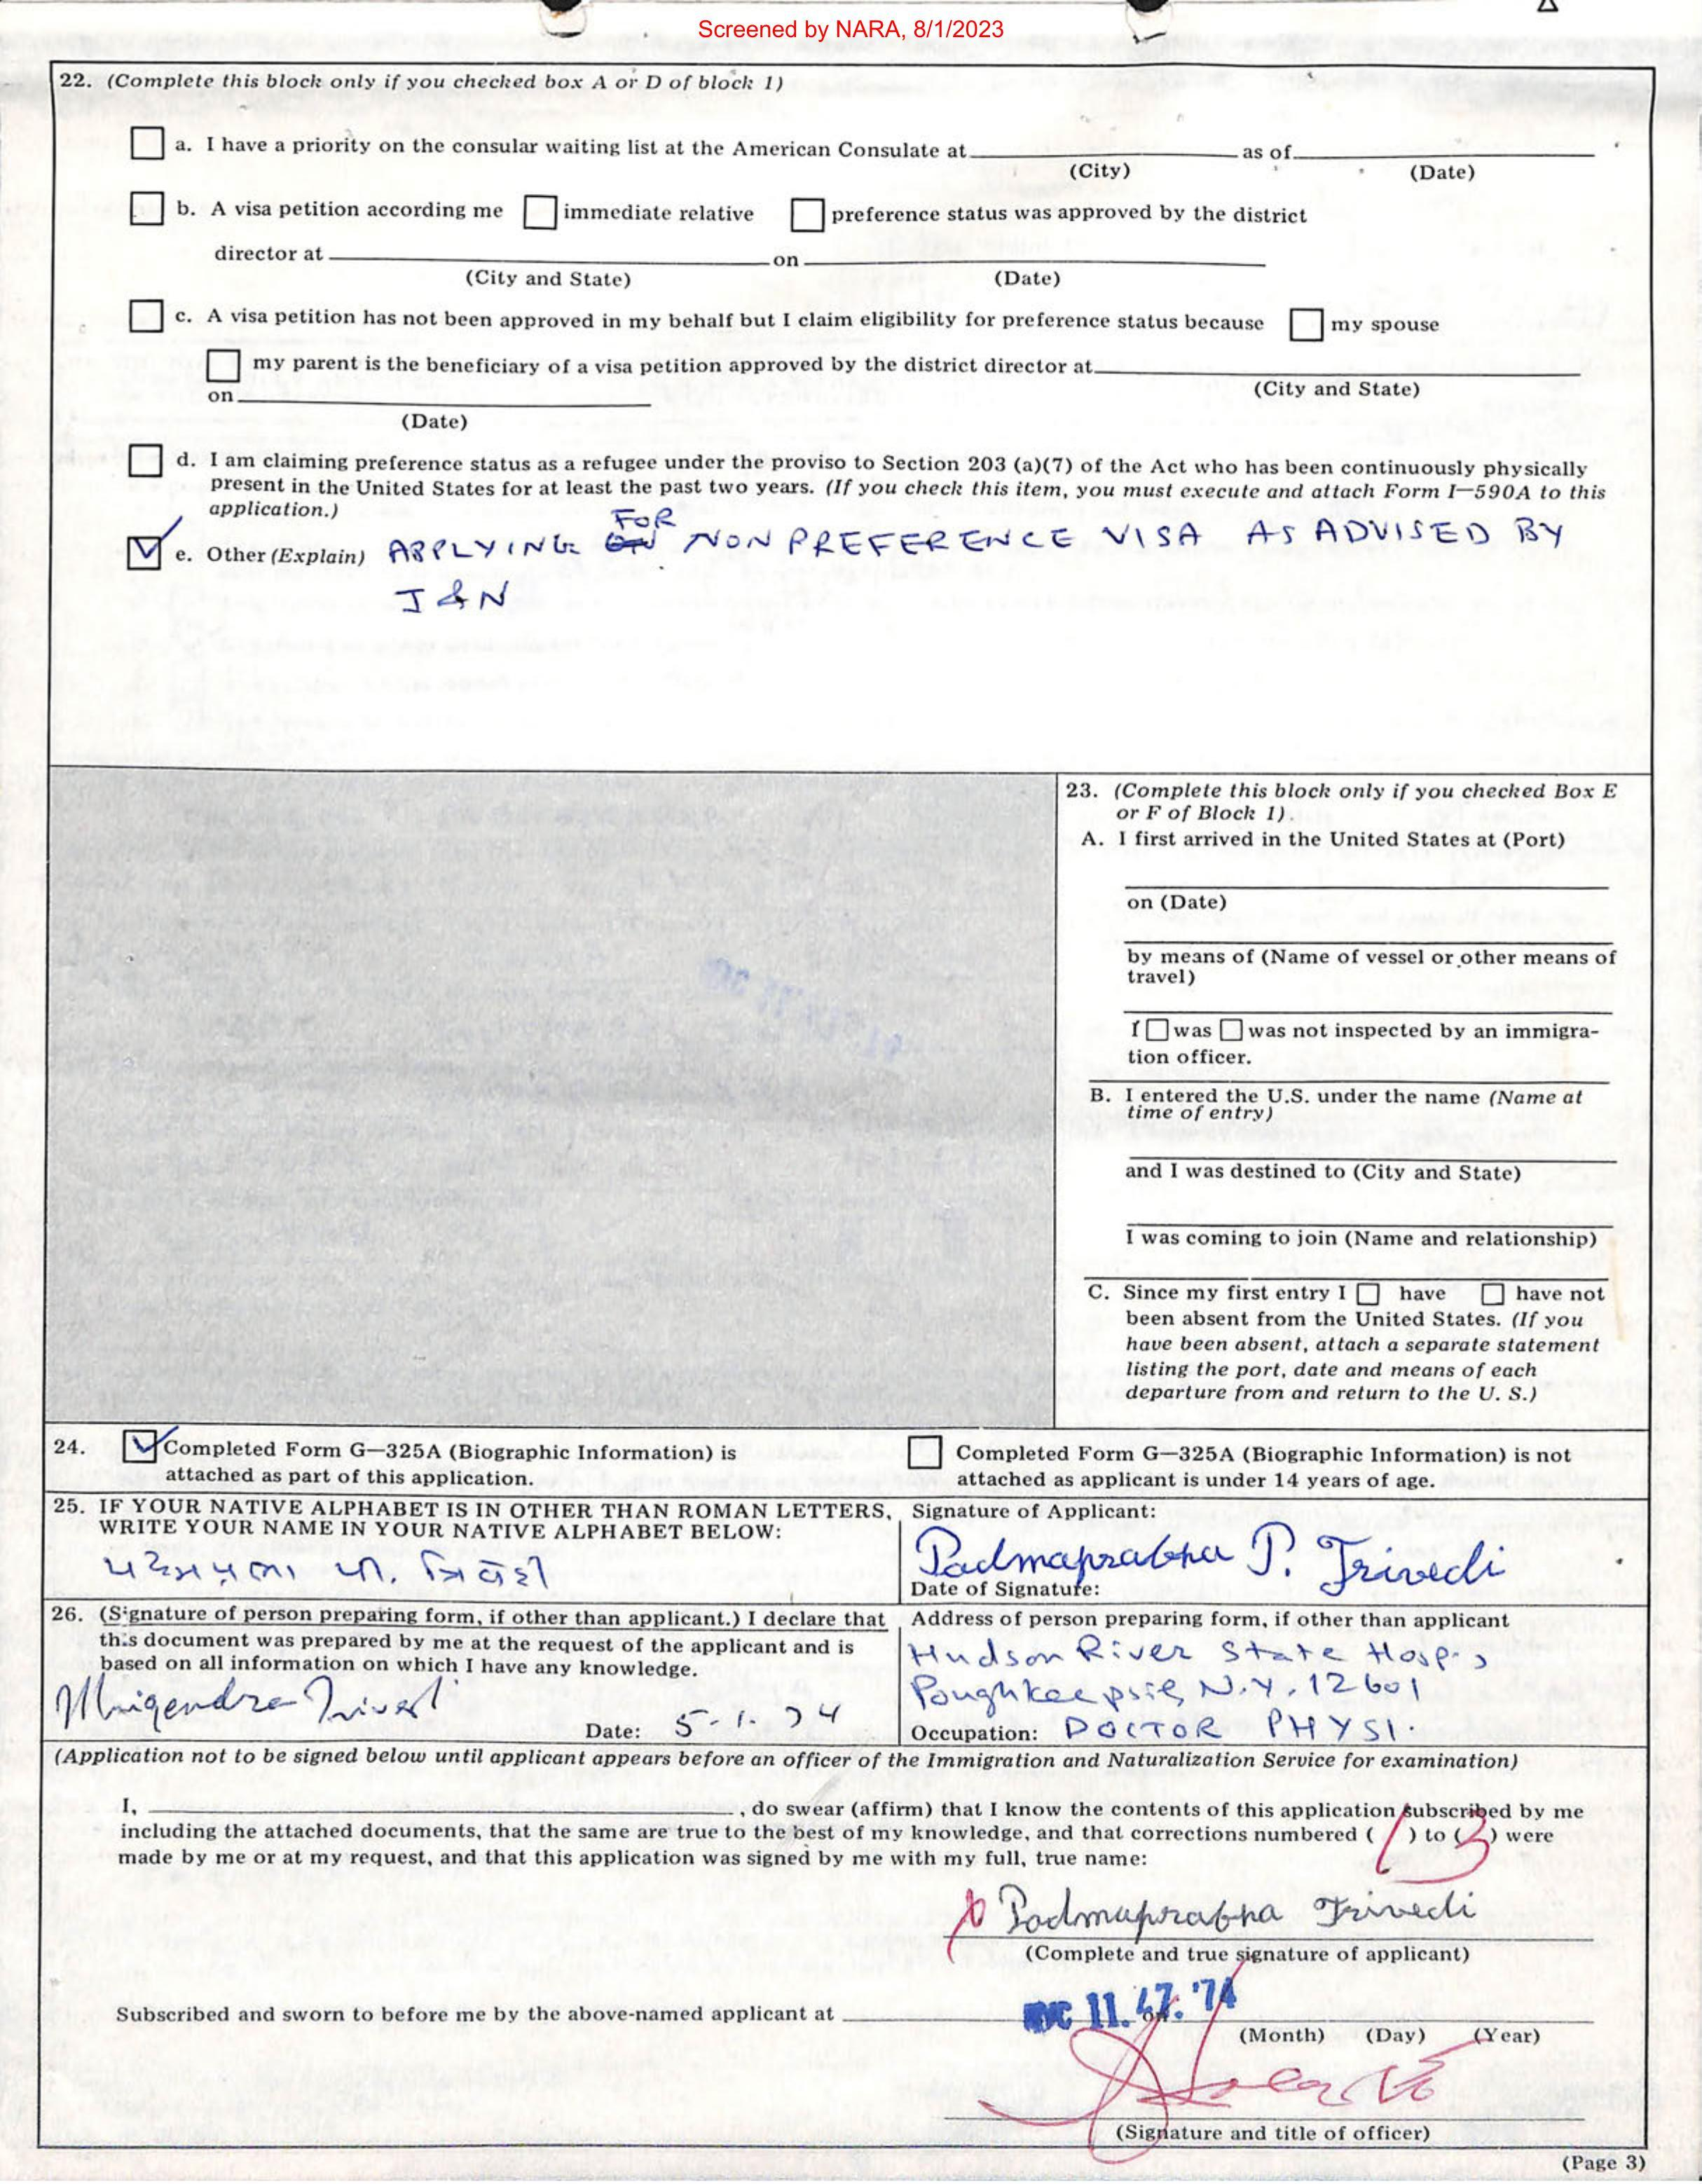 Screened by NARA, 8/1/2023
22. (Complete this block only if you checked box A or D of block 1)
a. I have a priority on the consular waiting list at the American Consulate at as of
(City) (Date)
b. A visa petition according me immediate relative preference status was approved by the district
director at on
(City and State) (Date)
c. A visa petition has not been approved in my behalf but I claim eligibility for preference status because my spouse
my parent is the beneficiary of a visa petition approved by the district director at
(City and State)
on
(Date)
d. I am claiming preference status as a refugee under the proviso to Section 203 (a)(7) of the Act who has been continuously physically
present in the United States for at least the past two years. (If you check this item, you must execute and attach Form I—590A to this
application.)
e. Other (Explain) APPLYING FOR NON PREFERENCE VISA AS ADVISED BY
I & N
23. (Complete this block only if you checked Box E
or F of Block 1).
A. I first arrived in the United States at (Port)
on (Date)
by means of (Name of vessel or other means of
travel)
I was was not inspected by an immigra-
tion officer.
B. I entered the U.S. under the name (Name at
time of entry)
and I was destined to (City and State)
I was coming to join (Name and relationship)
C. Since my first entry I have have not
been absent from the United States. (If you
have been absent, attach a separate statement
listing the port, date and means of each
departure from and return to the U. S.)
24. Completed Form G—325A (Biographic Information) is
attached as part of this application.
Completed Form G—325A (Biographic Information) is not
attached as applicant is under 14 years of age.
25. IF YOUR NATIVE ALPHABET IS IN OTHER THAN ROMAN LETTERS,
WRITE YOUR NAME IN YOUR NATIVE ALPHABET BELOW:
Signature of Applicant:
Padmaprabha P. Trivedi
Date of Signature:
26. (Signature of person preparing form, if other than applicant.) I declare that
this document was prepared by me at the request of the applicant and is
based on all information on which I have any knowledge.
Mrigendra Trivedi
Date: 5-1-74
Address of person preparing form, if other than applicant
Hudson River State Hosp.,
Poughkeepsie, N.Y. 12601
Occupation: DOCTOR PHYSI.
(Application not to be signed below until applicant appears before an officer of the Immigration and Naturalization Service for examination)
I, , do swear (affirm) that I know the contents of this application subscribed by me
including the attached documents, that the same are true to the best of my knowledge, and that corrections numbered (1) to (3) were
made by me or at my request, and that this application was signed by me with my full, true name:
Padmaprabha Trivedi
(Complete and true signature of applicant)
Subscribed and sworn to before me by the above-named applicant at
(Month) (Day) (Year)
(Signature and title of officer)
(Page 3)